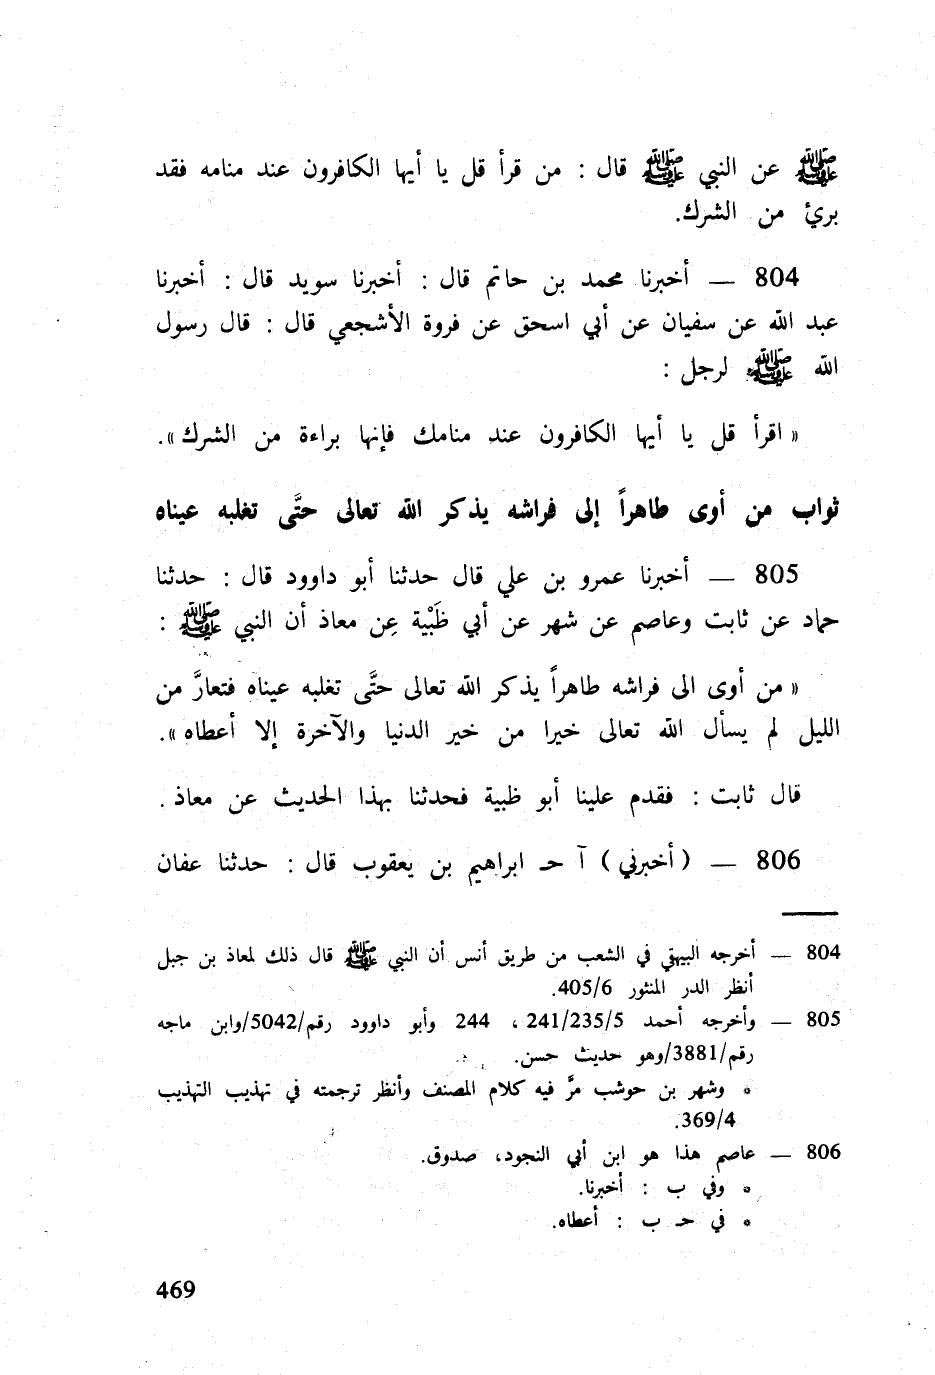 ﷺ عن النبي ﷺ قال : من قرأ قل يا أيها الكافرون عند منامه فقد
برئ من الشرك.
804 — أخبرنا محمد بن حاتم قال : أخبرنا سويد قال : أخبرنا
عبد الله عن سفيان عن أبي اسحق عن فروة الأشجعي قال : قال رسول
الله ﷺ لرجل :
« اقرأ قل يا أيها الكافرون عند منامك فإنها براءة من الشرك».
ثواب من أوى طاهراً إلى فراشه يذكر الله تعالى حتَّى تغلبه عيناه
805 — أخبرنا عمرو بن علي قال حدثنا أبو داوود قال : حدثنا
حماد عن ثابت وعاصم عن شهر عن أبي ظَبْية عِن معاذ أن النبي ﷺ :
« من أوى الى فراشه طاهراً يذكر الله تعالى حتَّى تغلبه عيناه فتعارَّ من
الليل لم يسأل الله تعالى خيرا من خير الدنيا والآخرة إلا أعطاه».
قال ثابت : فقدم علينا أبو ظبية فحدثنا بهذا الحديث عن معاذ .
806 — (أخبرني) آ حـ ابراهيم بن يعقوب قال : حدثنا عفان
804 — أخرجه البيهقي في الشعب من طريق أنس أن النبي ﷺ قال ذلك لمعاذ بن جبل
أنظر الدر المنثور 405/6.
805 — وأخرجه أحمد 241/235/5 ، 244 وأبو داوود رقم/5042/وابن ماجه
رقم/3881/وهو حديث حسن.
* وشهر بن حوشب مرَّ فيه كلام المصنف وأنظر ترجمته في تهذيب التهذيب
369/4.
806 — عاصم هذا هو ابن أبي النجود، صدوق.
* وفي ب : أخبرنا.
* في حـ ب : أعطاه.
469